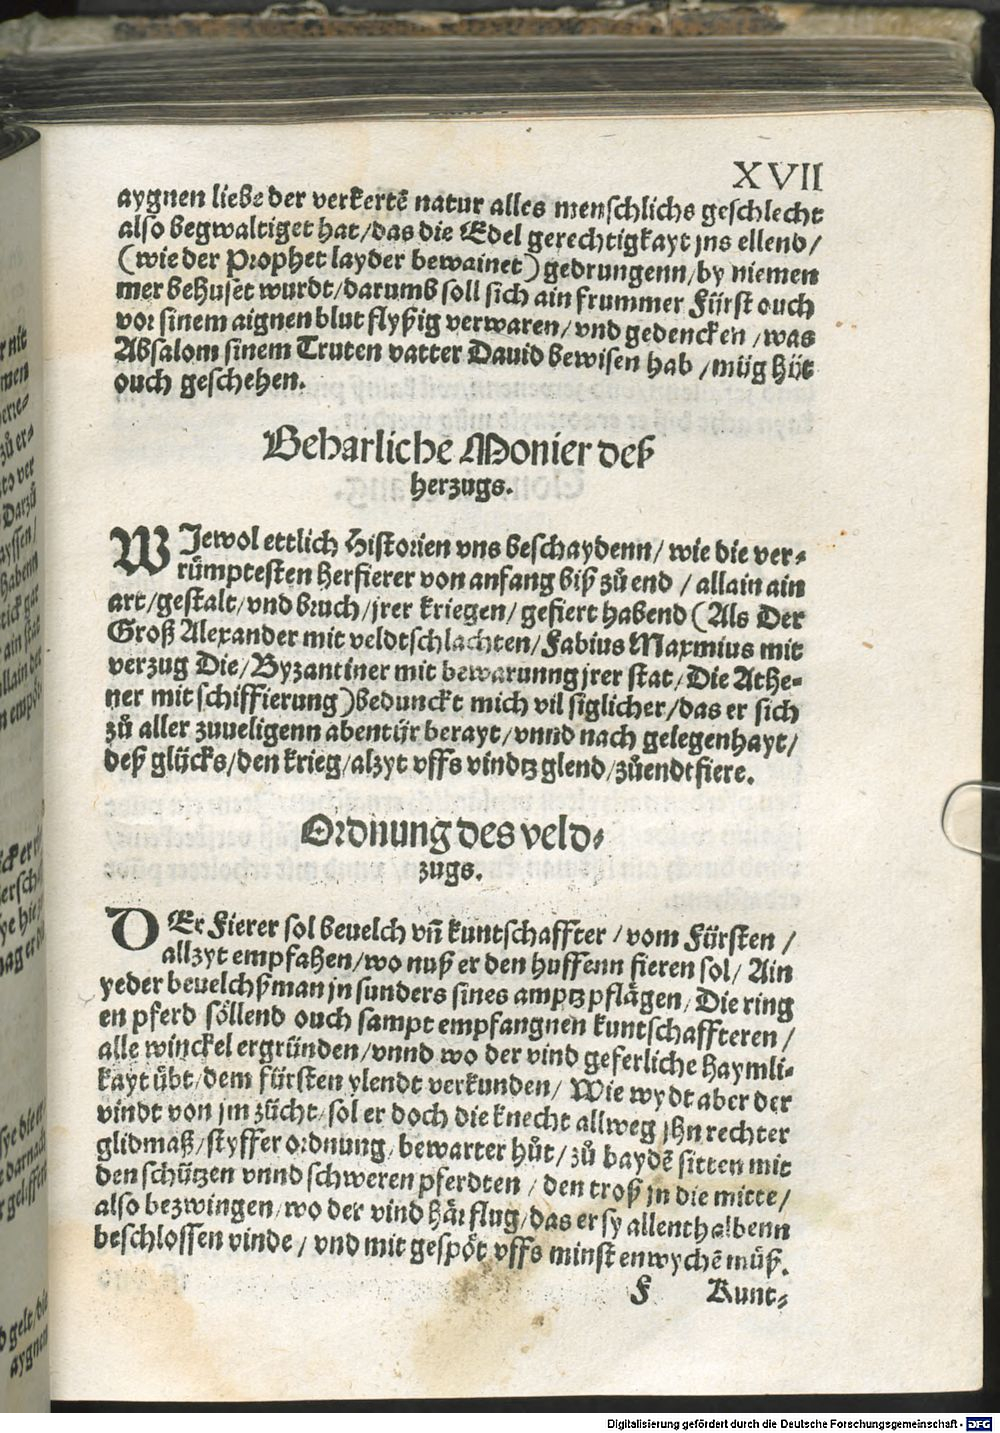 XVII
aygnen liebe der verkertē natur alles menschlichs geschlecht
also begwaltiget hat/das die Edel gerechtigkayt jns ellend/
(wie der Prophet layder bewainet) gedrungenn/by niemen
mer behuset wurdt/darumb soll sich ain frummer Fürst ouch
vor sinem aignen blut flyßig verwaren/vnd gedencken/was
Absalom sinem Truten vatter Dauid bewisen hab/müg hüt
ouch geschehen.
Beharliche Monier deß
herzugs.
WJewol ettlich Historien vns beschaydenn/wie die ver-
rümptesten Herfierer von anfang biß zů end/allain ain
art/gestalt/vnd bruch/jrer kriegen/gefiert habend (Als Der
Groß Alexander mit veldtschlachten/Fabius Maxmius mit
verzug Die/Byzantiner mit bewarunng jrer stat/Die Athe-
ner mit schiffierung) beduncĸt mich vil siglicher/das er sich
zů aller zuueligenn abentür berayt/vnnd nach gelegenhayt/
deß glücks/den krieg/alzyt vffs vindtz glend/zůendtfiere.
Ordnung des veld-
zugs.
DEr Fierer sol beuelch vñ kuntschaffter/vom Fürsten/
allzyt empfahen/wo nuß er den huffenn fieren sol/Ain
yeder beuelchßman jn sunders sines amptz pflägen/Die ring
en pferd söllend ouch sampt empfangnen kuntschaffteren/
alle winckel ergründen/vnnd wo der vind geferliche haymli-
kayt übt/dem fürsten ylendt verkunden/Wie wydt aber der
vindt von jm zücht/sol er doch die knecht allweg jhn rechter
glidmaß/styffer ordnung/bewarter hůt/zů baydē sitten mit
den schützen vnnd schweren pferdten/den troß jn die mitte/
also bezwingen/wo der vind här flug/das er sy allenthalbenn
beschlossen vinde/vnd mit gespöt vffs minst enwychē müß.
F Kunt-
Digitalisierung gefördert durch die Deutsche Forschungsgemeinschaft - DFG